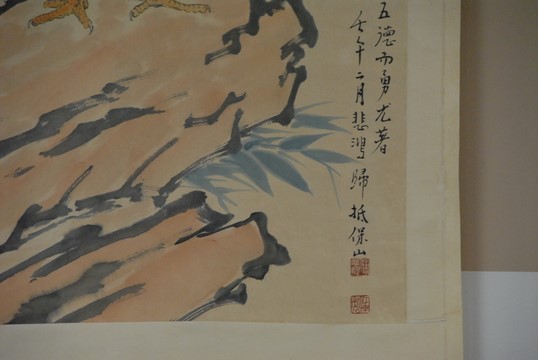 五德而勇尤著
壬午二月悲鴻歸抵保山